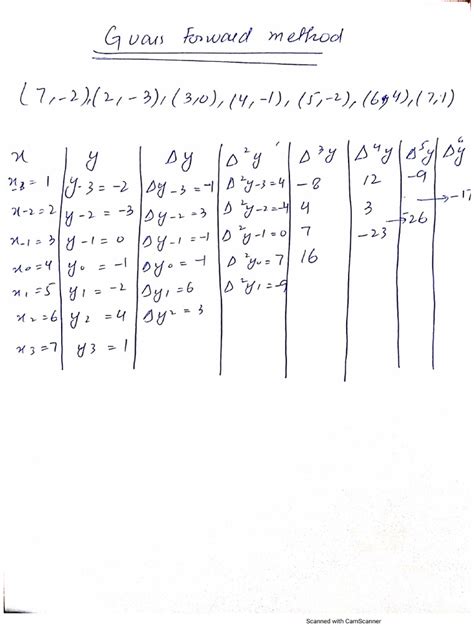 Guass Forward method
(7,-2),(2,-3),(3,0),(4,-1),(5,-2),(6,4),(7,1)
x y Δy Δ²y Δ³y Δ⁴y Δ⁵y Δ⁶y
x₃ = 1 y-3 = -2 Δy-3 = -1 Δ²y-3 = 4 -8 12 -9
→ -17
x-2 = 2 y-2 = -3 Δy-2 = 3 Δ²y-2 = -4 4 3
→ 26
x-1 = 3 y-1 = 0 Δy-1 = -1 Δ²y-1 = 0 7 -23
x₀ = 4 y₀ = -1 Δy₀ = -1 Δ²y₀ = 7 16
x₁ = 5 y₁ = -2 Δy₁ = 6 Δ²y₁ = -9
x₂ = 6 y₂ = 4 Δy₂ = 3
x₃ = 7 y₃ = 1
Scanned with CamScanner